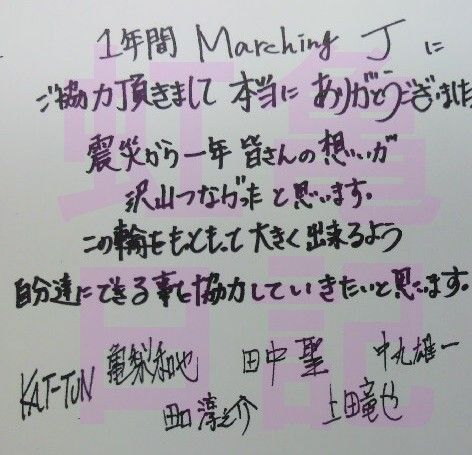 1年間 Marching J に
ご協力頂きまして 本当に ありがとうございました
震災から一年 皆さんの想いが
沢山つながったと思います。
この輪をもっともって大きく出来るよう
自分達にできる事を協力していきたいと思います。
KAT-TUN 亀梨和也 田中 聖 中丸雄一
田口淳之介 上田竜也
虹亀
日記